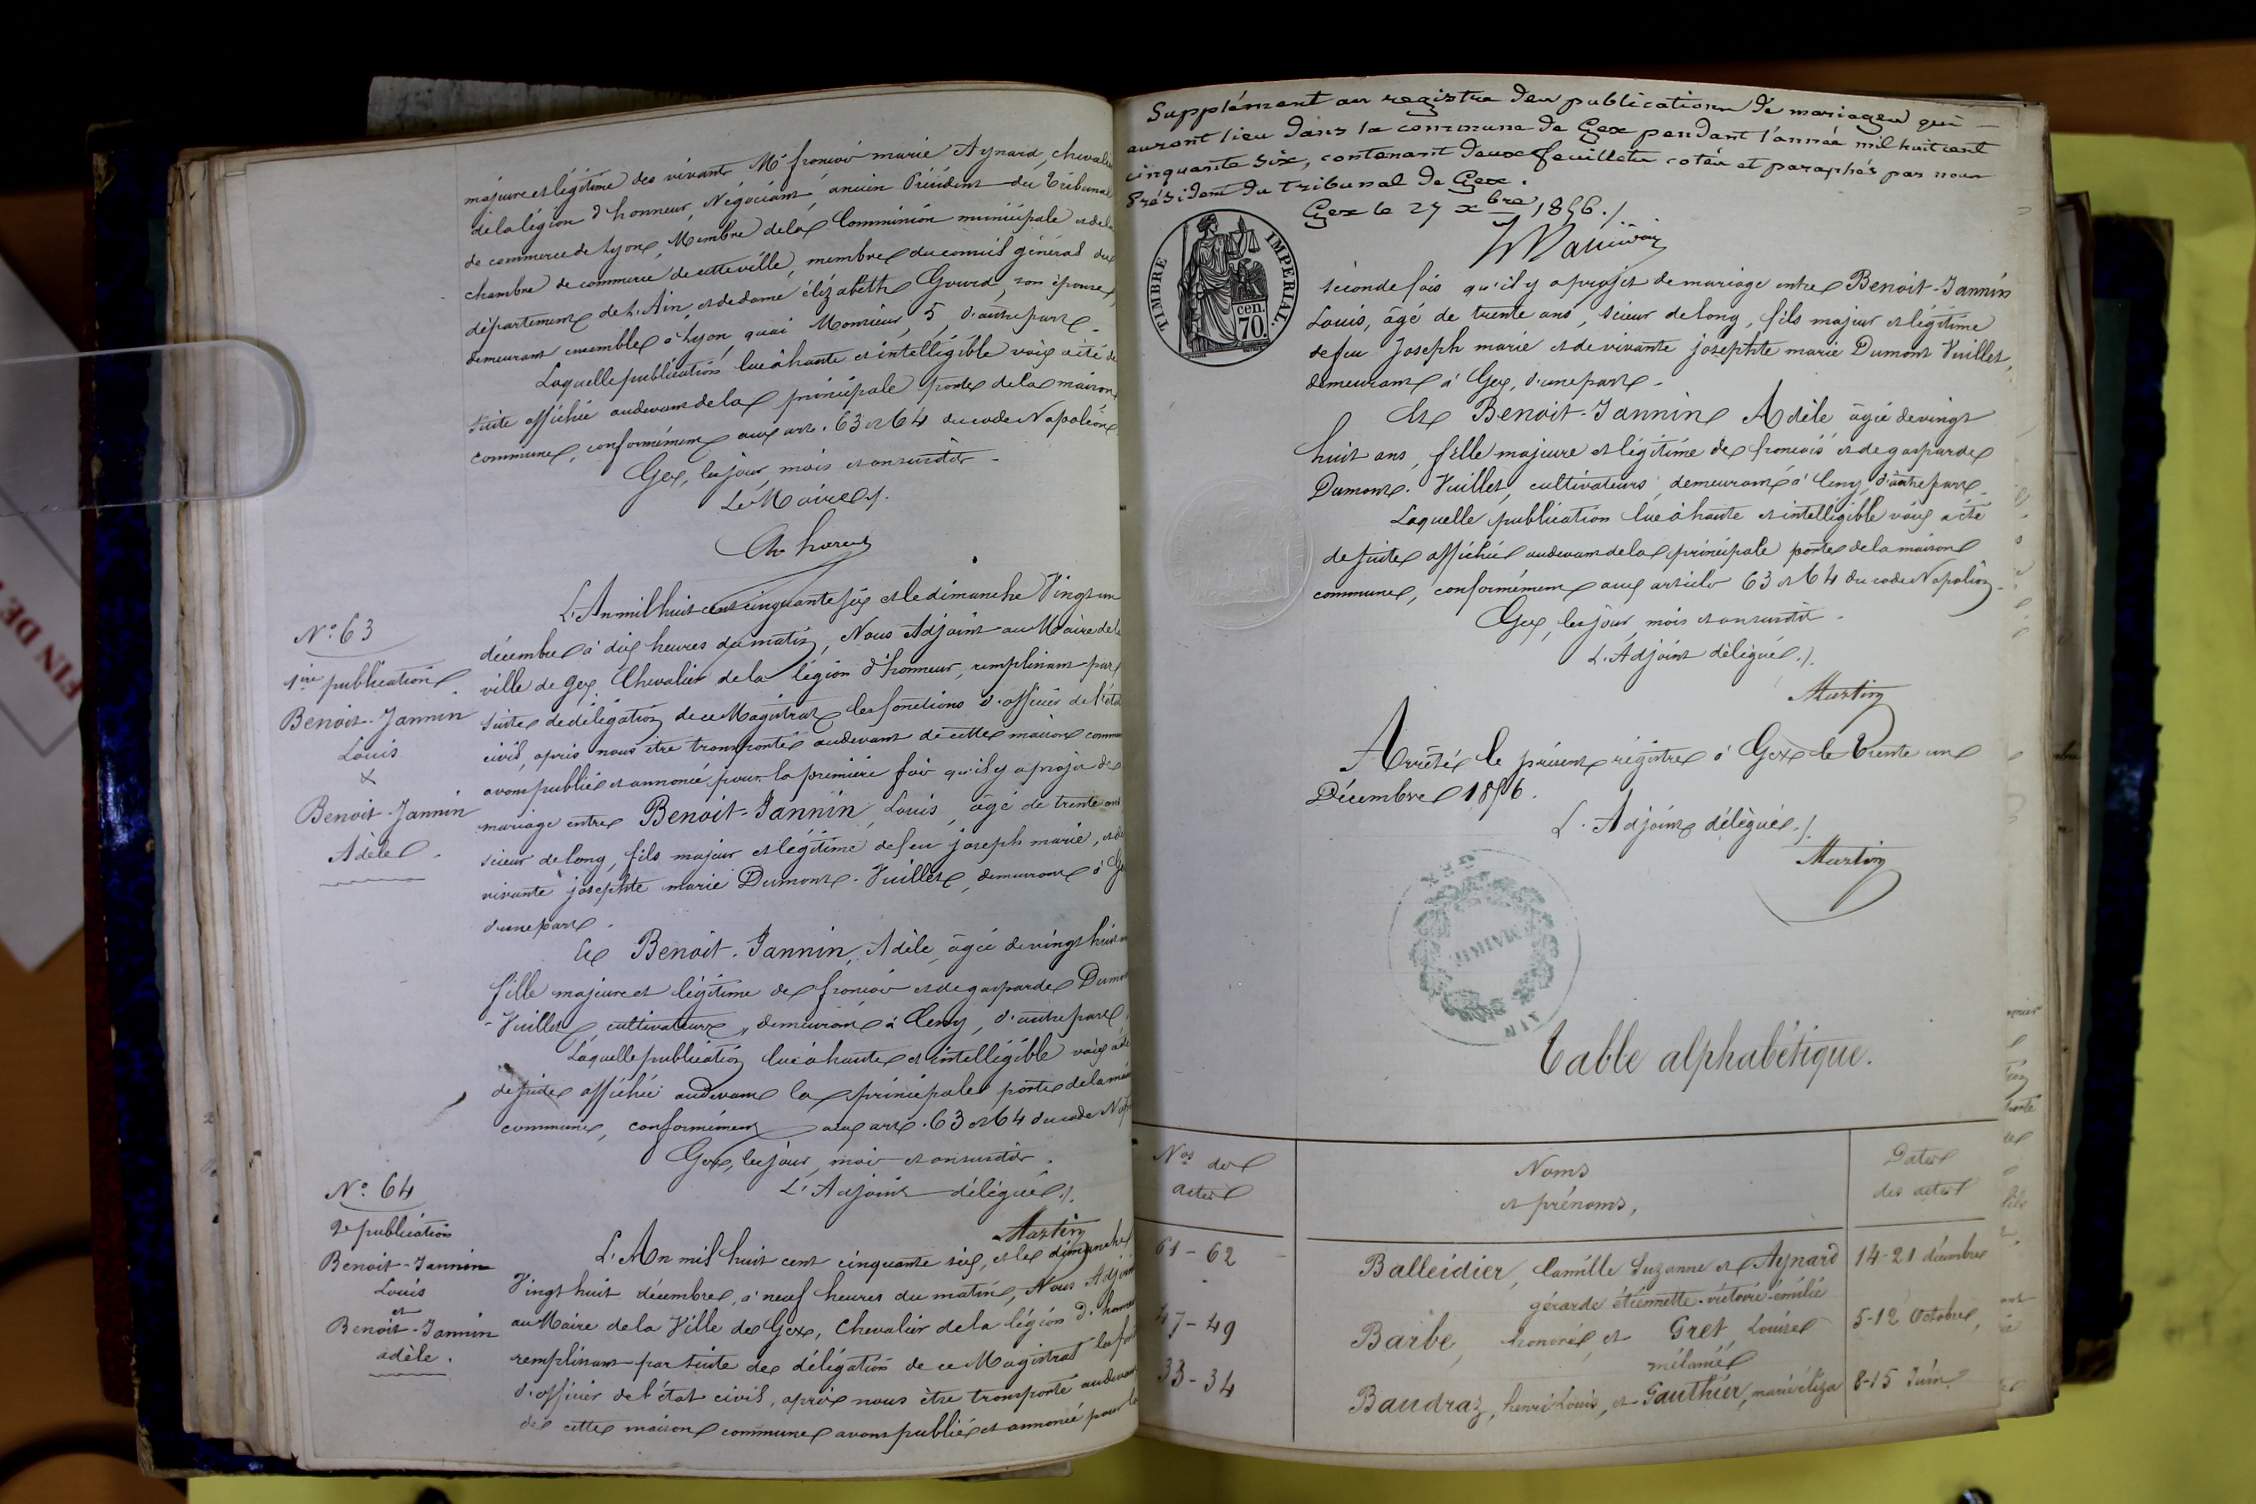 majeure et légitime des vivants Mr françois marie Aynard, chevalier
de la légion d'honneur, Négociant, ancien Président du Tribunal
de commerce de Lyon, Membre de la Commission municipale et de la
chambre de commerce de cette ville, membre du conseil général du
département de l'Ain, et de dame élizabeth Gourd, son épouse,
demeurant ensemble à Lyon quai Monsieur, 5, d'autre part.
Laquelle publication lue à haute et intelligible voix a été de
suite affichée au devant de la principale porte de la maison
commune, conformément aux art. 63 et 64 du code Napoléon
Gex, les jour, mois et an susdits.
Le Maire ./.
No. 63
1ère publication
Benoit-Jannin
Louis
&
Benoit-Jannin
Adèle.
L'An mil huit cent cinquante six et le dimanche Vingt un
décembre à dix heures du matin, Nous Adjoint au Maire de la
ville de Gex, Chevalier de la légion d'honneur, remplissant par
suite de délégation de ce Magistrat les fonctions d'officier de l'état
civil, après nous être transporté au devant de cette maison commune
avons publié et annoncé pour la première fois qu'il y a projet de
mariage entre Benoit-Jannin, Louis, âgé de trente ans
scieur de long, fils majeur et légitime de feu joseph marie, et de
vivante josephte marie Dumont-Vuillet, demeurant à Gex
d'une part.
Et Benoit-Jannin, Adèle, âgée de vingt huit ans
fille majeure et légitime de françois et de gasparde Dumont
-Vuillet, cultivateurs, demeurant à Cessy, d'autre part.
Laquelle publication lue à haute et intelligible voix a été
de suite affichée au devant la principale porte de la maison
commune, conformément aux art. 63 et 64 du code Napo
Gex, les jour, mois et an susdits.
L'Adjoint délégué ./.
Martin
No. 64
2e publication
Benoit-Jannin
Louis
et
Benoit-Jannin
adèle.
L'An mil huit cent cinquante six, et le dimanche
Vingt huit décembre, à neuf heures du matin, Nous Adjoint
au Maire de la Ville de Gex, Chevalier de la légion d'honneur
remplissant par suite de délégation de ce Magistrat les fonct
d'officier de l'état civil, après nous être transporté au devant
de cette maison commune avons publié et annoncé pour la
Supplément au registre des publications de mariages qui
auront lieu dans la commune de Gex pendant l'année mil huit cent
cinquante six, contenant deux feuillets cotés et paraphés par nous
Président du tribunal de Gex.
Gex le 27 xbre 1856 ./.
TIMBRE IMPERIAL.
cen.
70.
seconde fois qu'il y a projet de mariage entre Benoit-Jannin
Louis, âgé de trente ans, scieur de long, fils majeur et légitime
de feu Joseph marie et de vivante josephte marie Dumont Vuillet,
demeurant à Gex, d'une part.
Et Benoit-Jannin Adèle âgée de vingt
huit ans, fille majeure et légitime de françois et de gasparde
Dumont-Vuillet, cultivateurs, demeurant à Cessy, d'autre part.
Laquelle publication lue à haute et intelligible voix a été
de suite affichée au devant de la principale porte de la maison
commune, conformément aux articles 63 et 64 du code Napoléon.
Gex, les jour mois et an susdits.
L'Adjoint délégué ./.
Martin
Arrêté le présent régistre à Gex le trente un
Décembre 1856.
L'Adjoint délégué ./.
Martin
GEX
MAIRIE
AIN
Table alphabétique.
Nos des
actes
Noms
et prénoms,
Dates
des actes
61-62
Balleidier, Camille Suzanne et Aynard
14-21 décembre
gérarde étiennette-victoire-émilie
47-49
Barbe, honoré, et Gret Louise
5-12 Octobre,
mélanie
33-34
Baudraz, henri Louis, et Gauthier, marie éliza
8-15 Juin